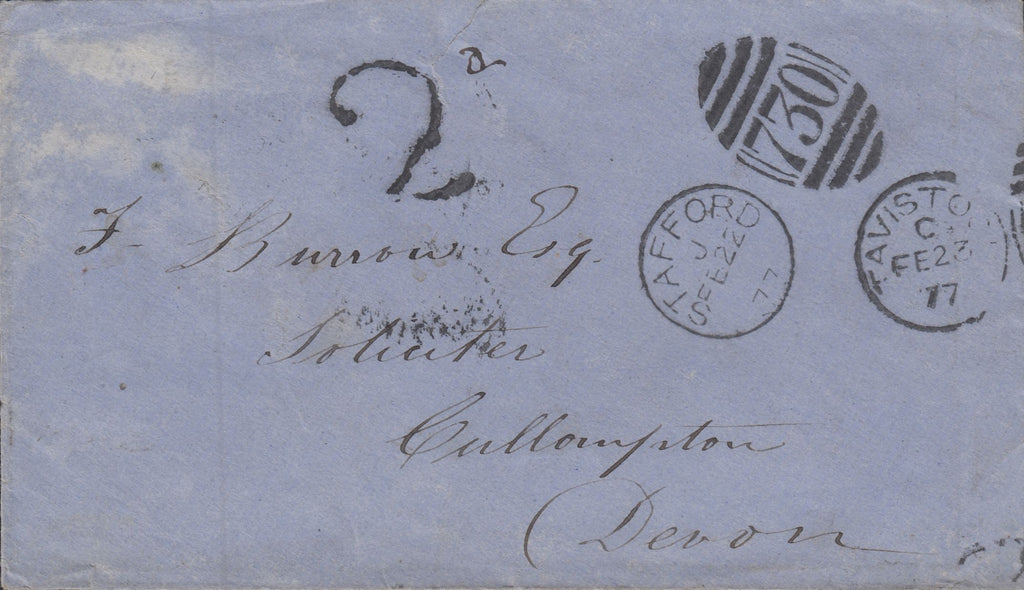 2d
730
STAFFORD
J
FE 22
77
TAVISTO
C
FE 23
77
F. Burrow Esq.
Soliciter
Cullompton
Devon